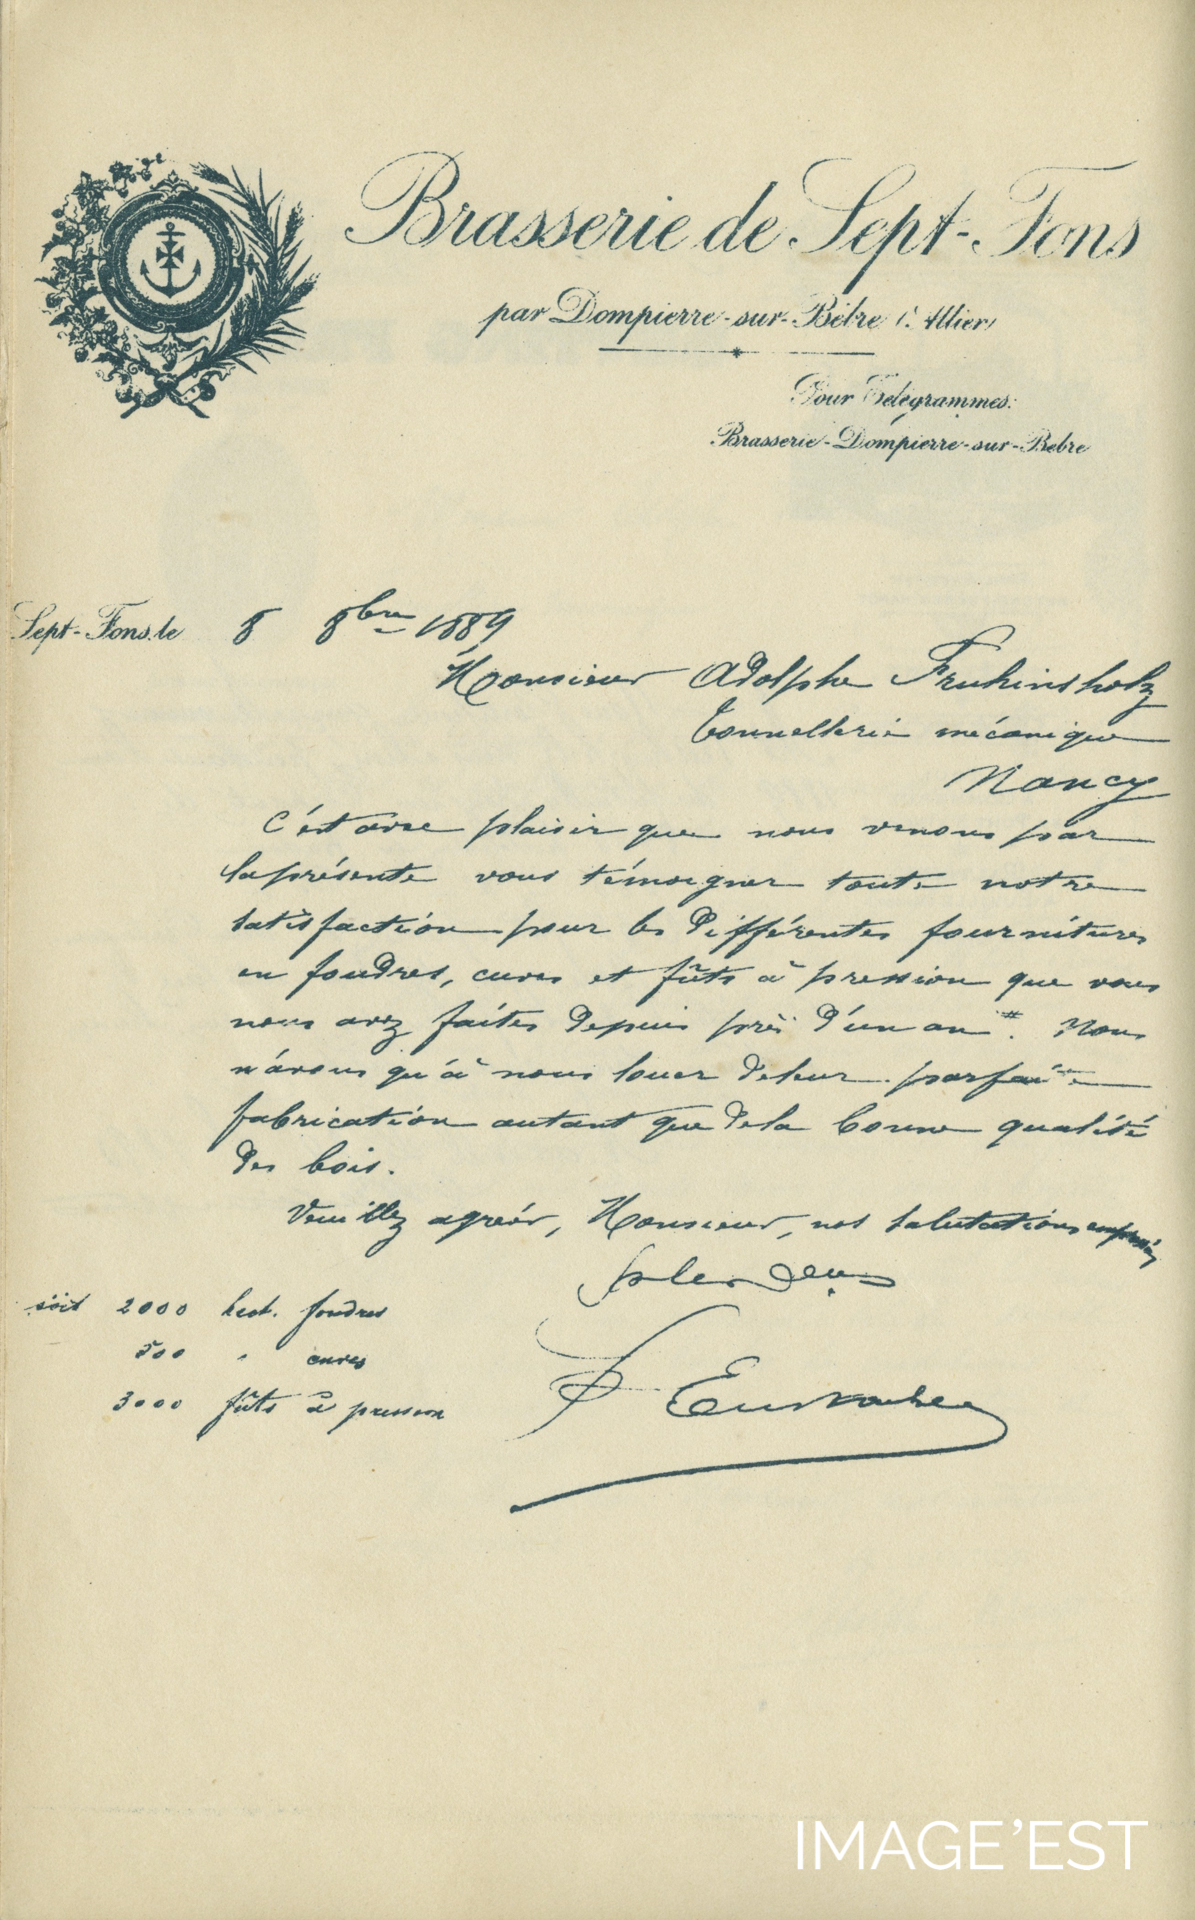 Brasserie de Sept-Fons
par Dompierre-sur-Bèbre (Allier)
Pour Télégrammes:
Brasserie-Dompierre-sur-Bèbre
Sept-Fons, le 8 8bre 1889
Monsieur Adolphe Fruhinsholz
Tonnellerie mécanique
Nancy
C'est avec plaisir que nous venons par
la présente vous témoigner toute notre
satisfaction pour les différentes fournitures
en foudres, cuves et fûts à pression que vous
nous avez faites depuis près d'un an #. Nous
n'avons qu'à nous louer de leur parfaite
fabrication autant que de la bonne qualité
des bois.
Veuillez agréer, Monsieur, nos salutations empressées
soit 2000 hect. foudres
500 " cuves
3000 fûts à pression
IMAGE'EST